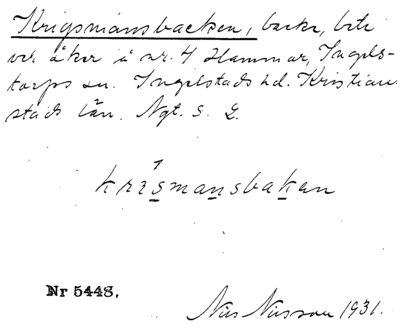 Krigsmansbacken, backe, beti
ver åker å nr. 4 Hammar, Ingels-
torps sn. Ingelstads hd. Kristian
stads län. Ngt. s. L.
krismansbakan
Nr 5448.
Nils Nilsson 1931.